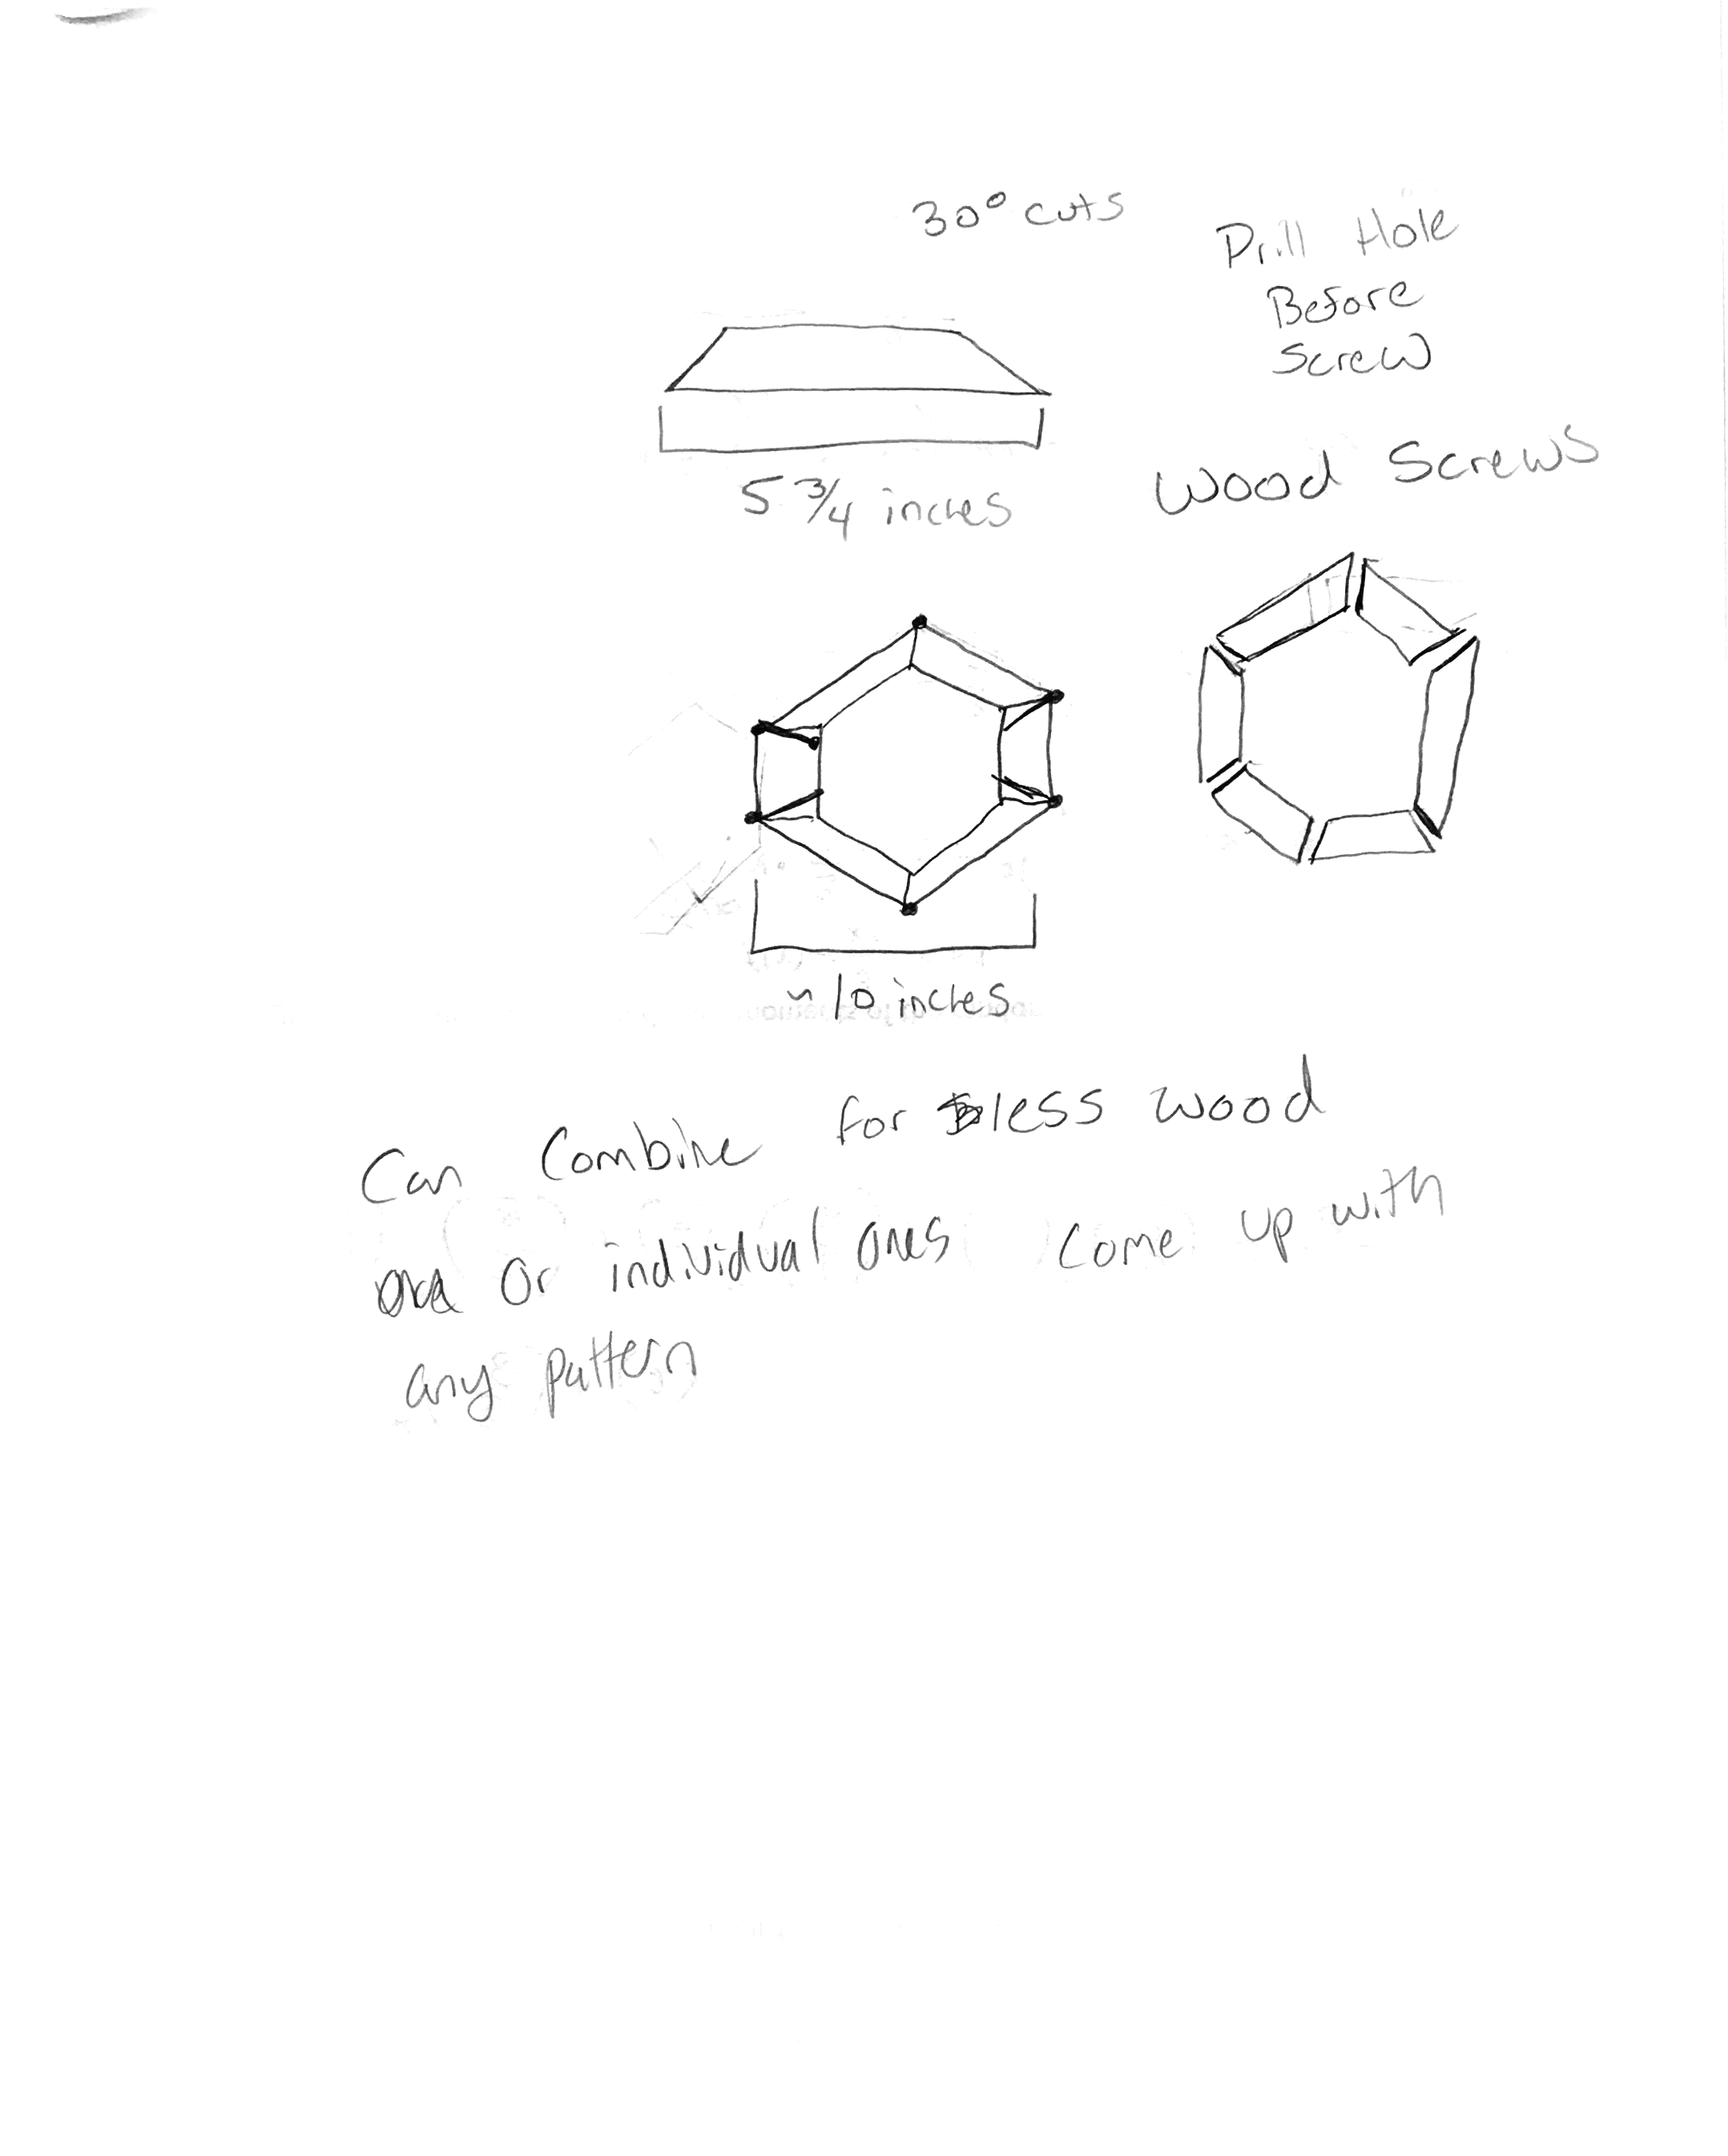 30° cuts
Drill Hole
Before
Screw
Wood Screws
5 3/4 inches
~ 10 inches
Can Combine for less wood
one or individual ones Come up with
any pattern